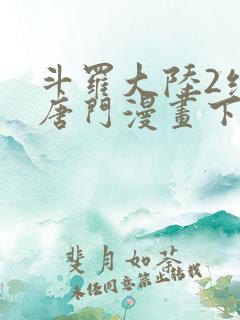 斗羅大陸2絕
唐門漫畫下
斐月如茶
未经同意禁止转载